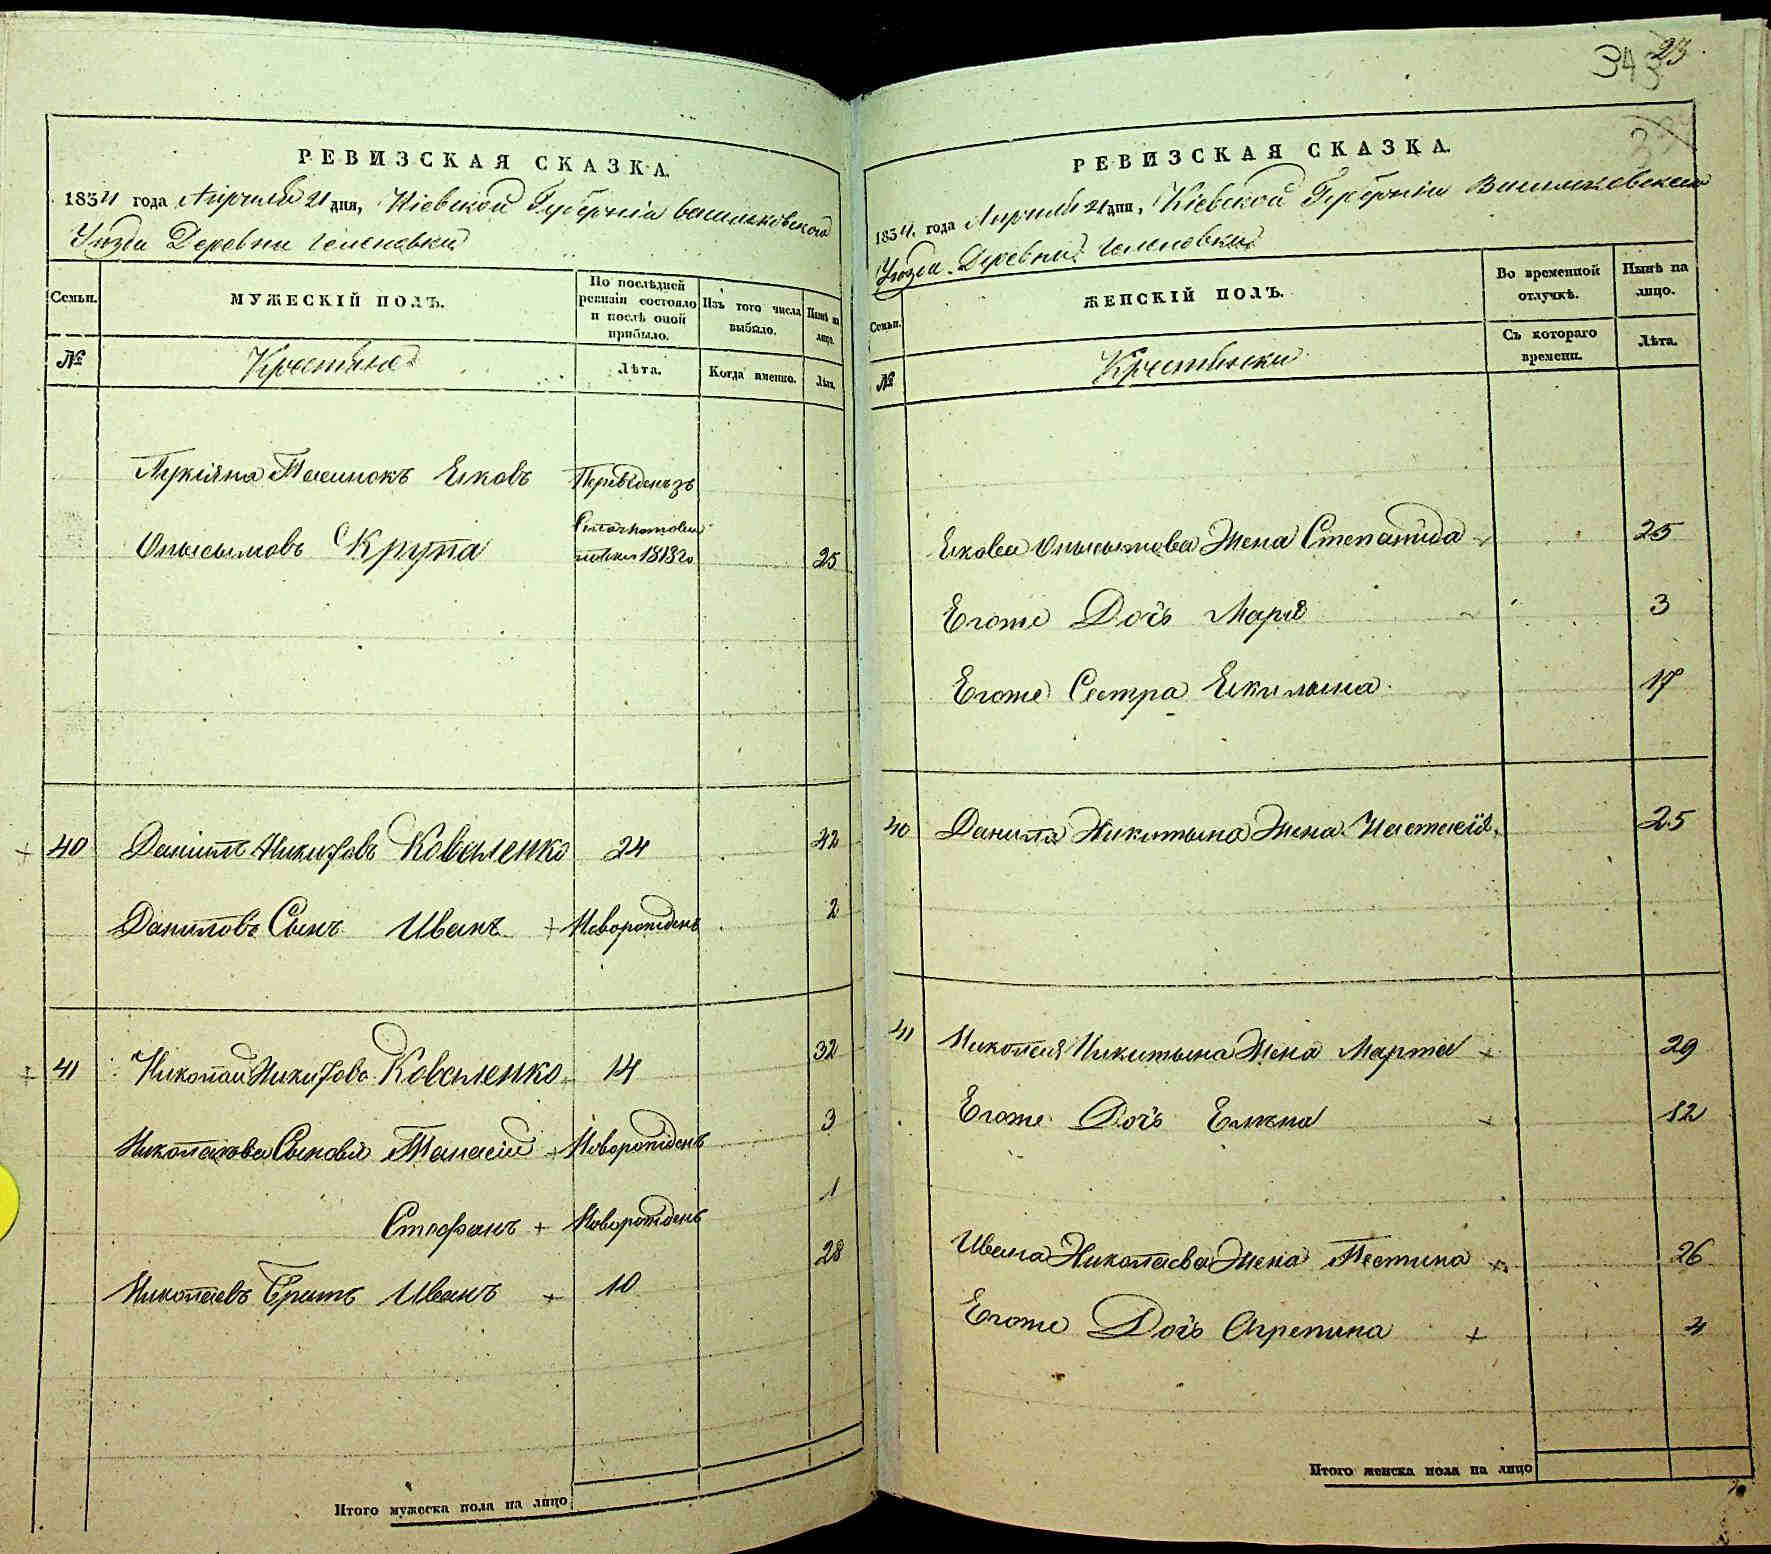 23
343
РЕВИЗСКАЯ СКАЗКА.
1854 года Апреля 21 дня, Кіевской Губерніи Васильковского
Уѣзда Деревни
Семьи.
МУЖЕСКІЙ ПОЛЪ.
По послѣдней ревизіи состояло и послѣ оной прибыло.
Изъ того числа выбыло.
Нынѣ на лицо.
№
Крестьяне
Лѣта.
Когда именно.
Лѣта.
Лукіяна Пасинокъ Яковъ
Онысымовъ Крупа 25
40 Данило Никифовъ Коваленко 24 42
Данилова Сынъ Иванъ + Новорожденъ 2
41 Николай Никифовъ Коваленко 14 32
Николаева Сыновья Танасій Новорожденъ 3
Стефанъ + Новорожденъ 1
Николаевъ Братъ Иванъ + 10 28
Итого мужеска пола на лицо
РЕВИЗСКАЯ СКАЗКА.
1854. года Апреля 21 дня, Кіевской Губерніи Васильковского
Уѣзда Деревни
Семьи.
ЖЕНСКІЙ ПОЛЪ.
Во временной отлучкѣ.
Нынѣ на лицо.
№
Крестьянки
Съ котораго времени.
Лѣта.
Якова Онысымова Жена Степанида 25
Егоже Дочь Марія 3
Егоже Сестра Екилына 17
40 Данила Никитына Жена Настасія 25
41 Николая Никитына Жена Марта + 29
Егоже Дочь Елена + 12
Ивана Николаева Жена Тестина 26
Егоже Дочь Агрепина + 4
Итого женска пола на лицо